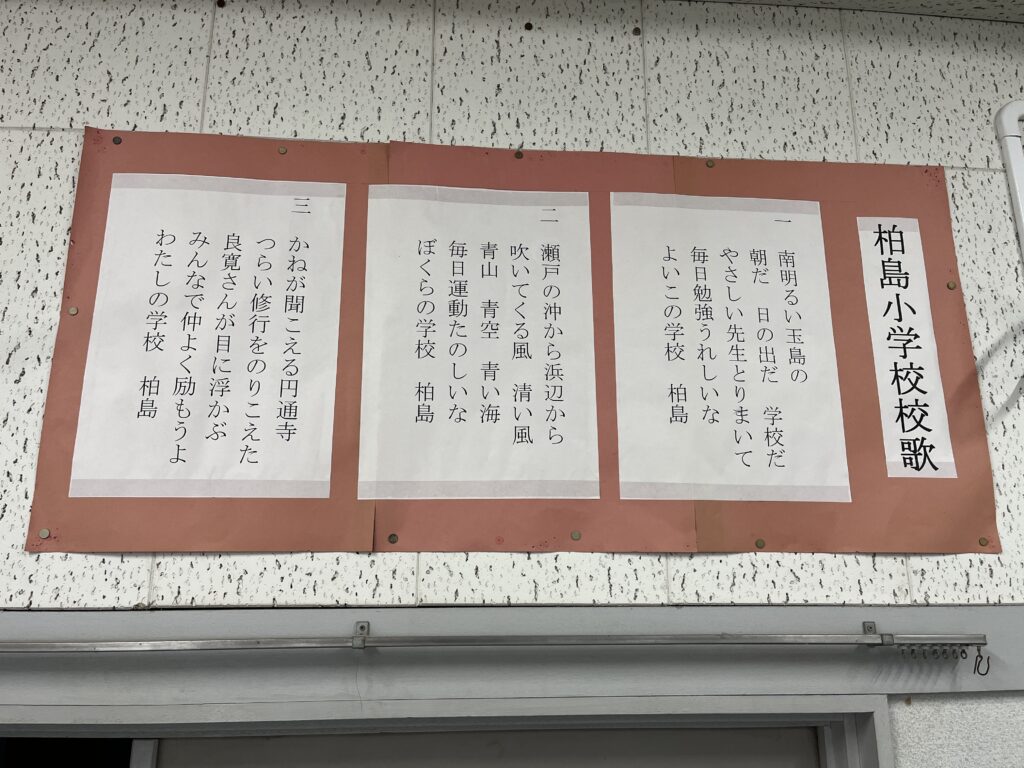 柏島小学校校歌
一
南明るい玉島の
朝だ　日の出だ　学校だ
やさしい先生とりまいて
毎日勉強うれしいな
よいこの学校　柏島
二
瀬戸の沖から浜辺から
吹いてくる風　清い風
青山　青空　青い海
毎日運動たのしいな
ぼくらの学校　柏島
三
かねが聞こえる円通寺
つらい修行をのりこえた
良寛さんが目に浮かぶ
みんなで仲よく励もうよ
わたしの学校　柏島